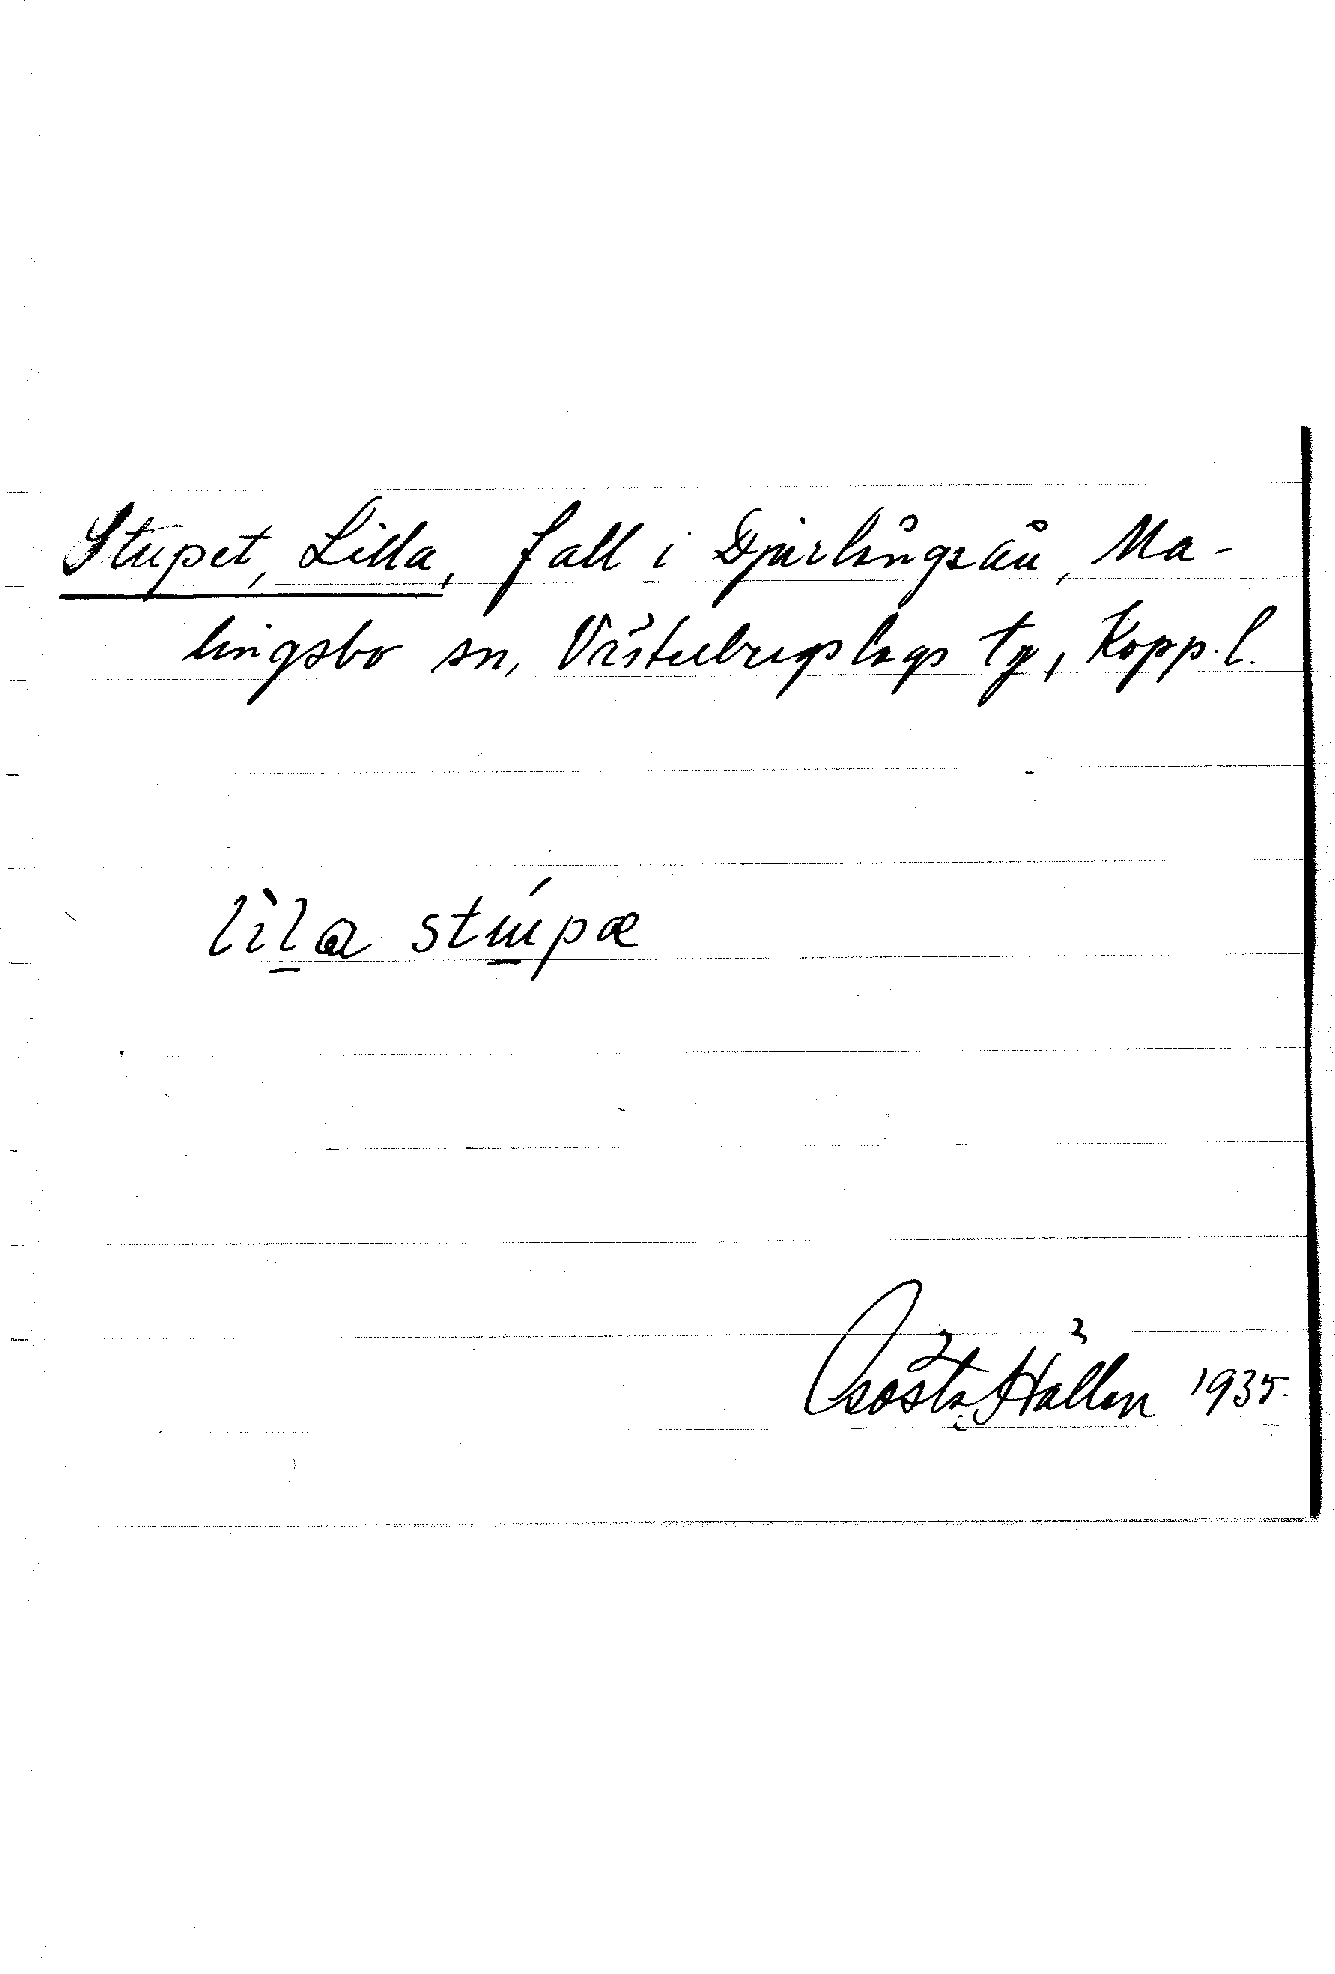 Stupet, Lilla, fall i Djurlångsån, Ma-
lingsbo sn, Västerbergslags tg, Kopp. l.
lìla stúpæ
Gösta Hallén 1935.